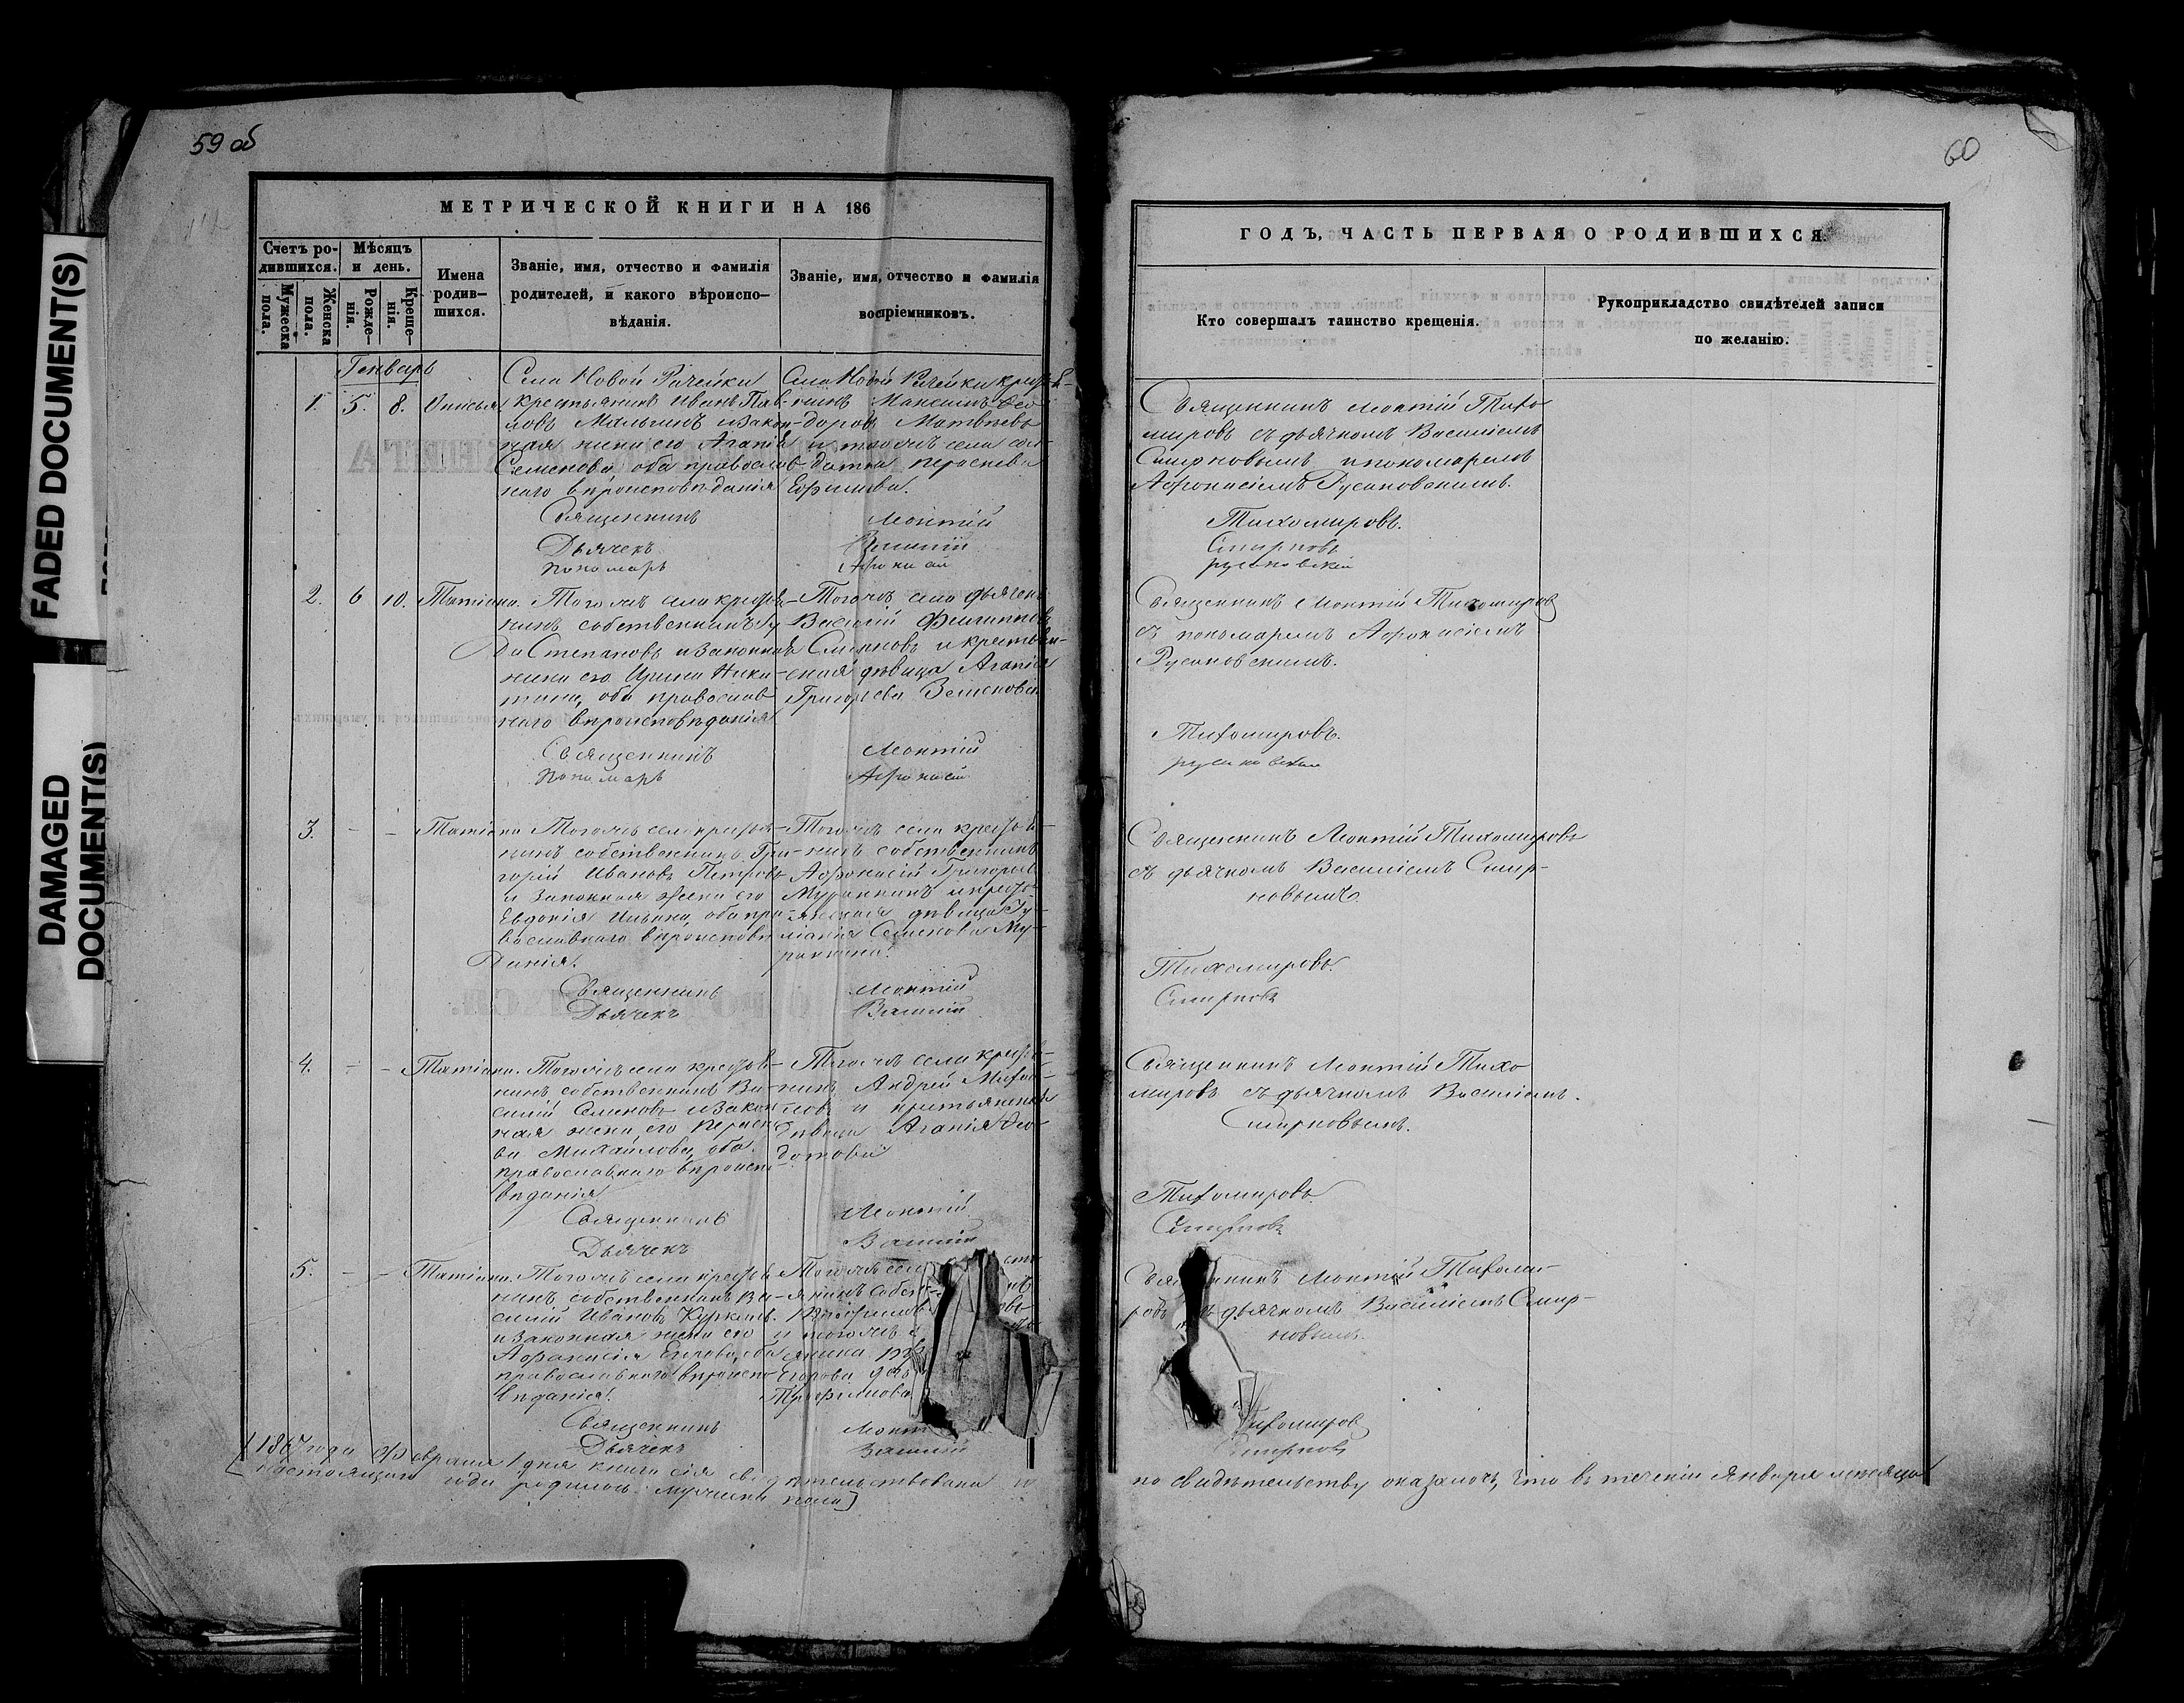 FADED DOCUMENT(S)
DAMAGED
DOCUMENT(S)
59 об
МЕТРИЧЕСКОЙ КНИГИ НА 186
Счетъ ро-
дившихся.
Мѣсяцъ
и день.
Мужеска
пола.
Женска
пола.
Рожде-
нія.
Креще-
нія.
Имена
родив-
шихся.
Званіе, имя, отчество и фамилія
родителей, и какого вѣроиспо-
вѣданія.
Званіе, имя, отчество и фамилія
воспріемниковъ.
Генварь
1. 5. 8.
Села Новой Рачейки
крестьянинъ Иванъ Пав-
ловъ Малыгинъ и закон-
ная жена его Агапія
Семенова оба православ-
наго вѣроисповѣданія
Села Новой Рачейки кресть-
янинъ Максимъ Ѳео-
доровъ Матвѣевъ
и тогожъ села сол-
датка
Ефимова.
Священникъ Леонтій
Дьячекъ Василій
Пономарь Афанасій
2. 6 10. Татіана.
Тогожъ села крестья-
нинъ собственникъ
Степановъ и законная
жена его Ирина Ники-
тина, оба православ-
наго вѣроисповѣданія
Тогожъ села дьячекъ
Василій Филипповъ
Смирновъ и крестьян-
ская дѣвица Агапія
Григорьева
Священникъ Леонтій
Пономарь Афанасій
3. - - Татіана
Тогожъ села крестья-
нинъ собственникъ Гри-
горій Ивановъ Петровъ
и законная жена его
Евдокія Ильина, оба пра-
вославнаго вѣроисповѣ-
данія.
Тогожъ села крестья-
нинъ собственникъ
Афанасій Григорьевъ
и кресть-
янская дѣвица Іу-
ліанія Семенова
Священникъ Леонтій
Дьячекъ Василій
4. - - Татіана.
Тогожъ села крестья-
нинъ собственникъ Ва-
силій Семеновъ и закон-
ная жена его Параске-
ва Михайлова, оба
православнаго вѣроиспо-
вѣданія
Тогожъ села кресть-
янинъ Андрей Михай-
ловъ и крестьянская
дѣвица Агапія Ѳео-
дотова
Священникъ Леонтій
Дьячекъ Василій
5. - - Татіана.
Тогожъ села крестья-
нинъ собственникъ Ва-
силій Ивановъ Куркинъ.
и законная жена его
Афанасія Егорова, оба
православнаго вѣроиспо-
вѣданія.
Тогожъ села
и тогожъ
Егорова
Трофимова
Священникъ Леонт
Дьячекъ Василій
[1867 года февраля 1 дня книга сія свидѣтельствована
настоящаго года родилось мужеска пола]
60
ГОДЪ, ЧАСТЬ ПЕРВАЯ О РОДИВШИХСЯ.
Кто совершалъ таинство крещенія.
Рукоприкладство свидѣтелей записи
по желанію.
Священникъ Леонтій Тихо
мировъ съ дьячкомъ Василіемъ
Смирновымъ и пономаремъ
Афанасіемъ Русановскимъ.
Тихомировъ.
Смирновъ
Русановскій
Священникъ Леонтій Тихомировъ
съ пономаремъ Афанасіемъ
Русановскимъ.
Тихомировъ.
Русановскій
Священникъ Леонтій Тихомировъ
съ дьячкомъ Василіемъ Смир-
новымъ
Тихомировъ.
Смирновъ
Священникъ Леонтій Тихо
мировъ съ дьячкомъ Василіемъ.
Смирновымъ.
Тихомировъ
Смирновъ
Священникъ Леонтій Тихоми-
ровъ съ дьячкомъ Василіемъ Смир-
новымъ.
Тихомировъ
Смирновъ
по свидѣтельству оказалось, что въ теченіи Января мѣсяца